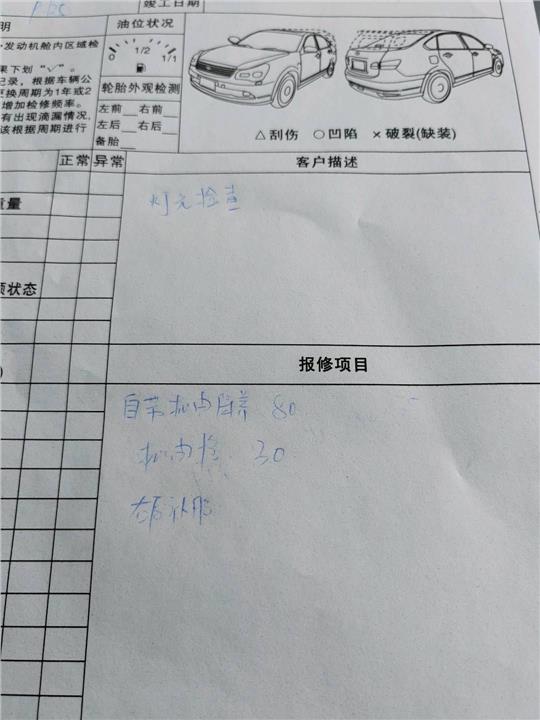 竣工日期
油位状况
明
发动机舱内区域检
0 1/2 1/1
果下划“√”。
记录，根据车辆公
更换周期为1年或2
增加检修频率。
有出现滴漏情况，
该根据周期进行
轮胎外观检测
左前 右前
左后 右后
备胎
△刮伤 ○凹陷 ×破裂(缺装)
正常 异常 客户描述
灯光检查
质量
项状态
报修项目
自带机油保养 80
机油格 30
右后补胎